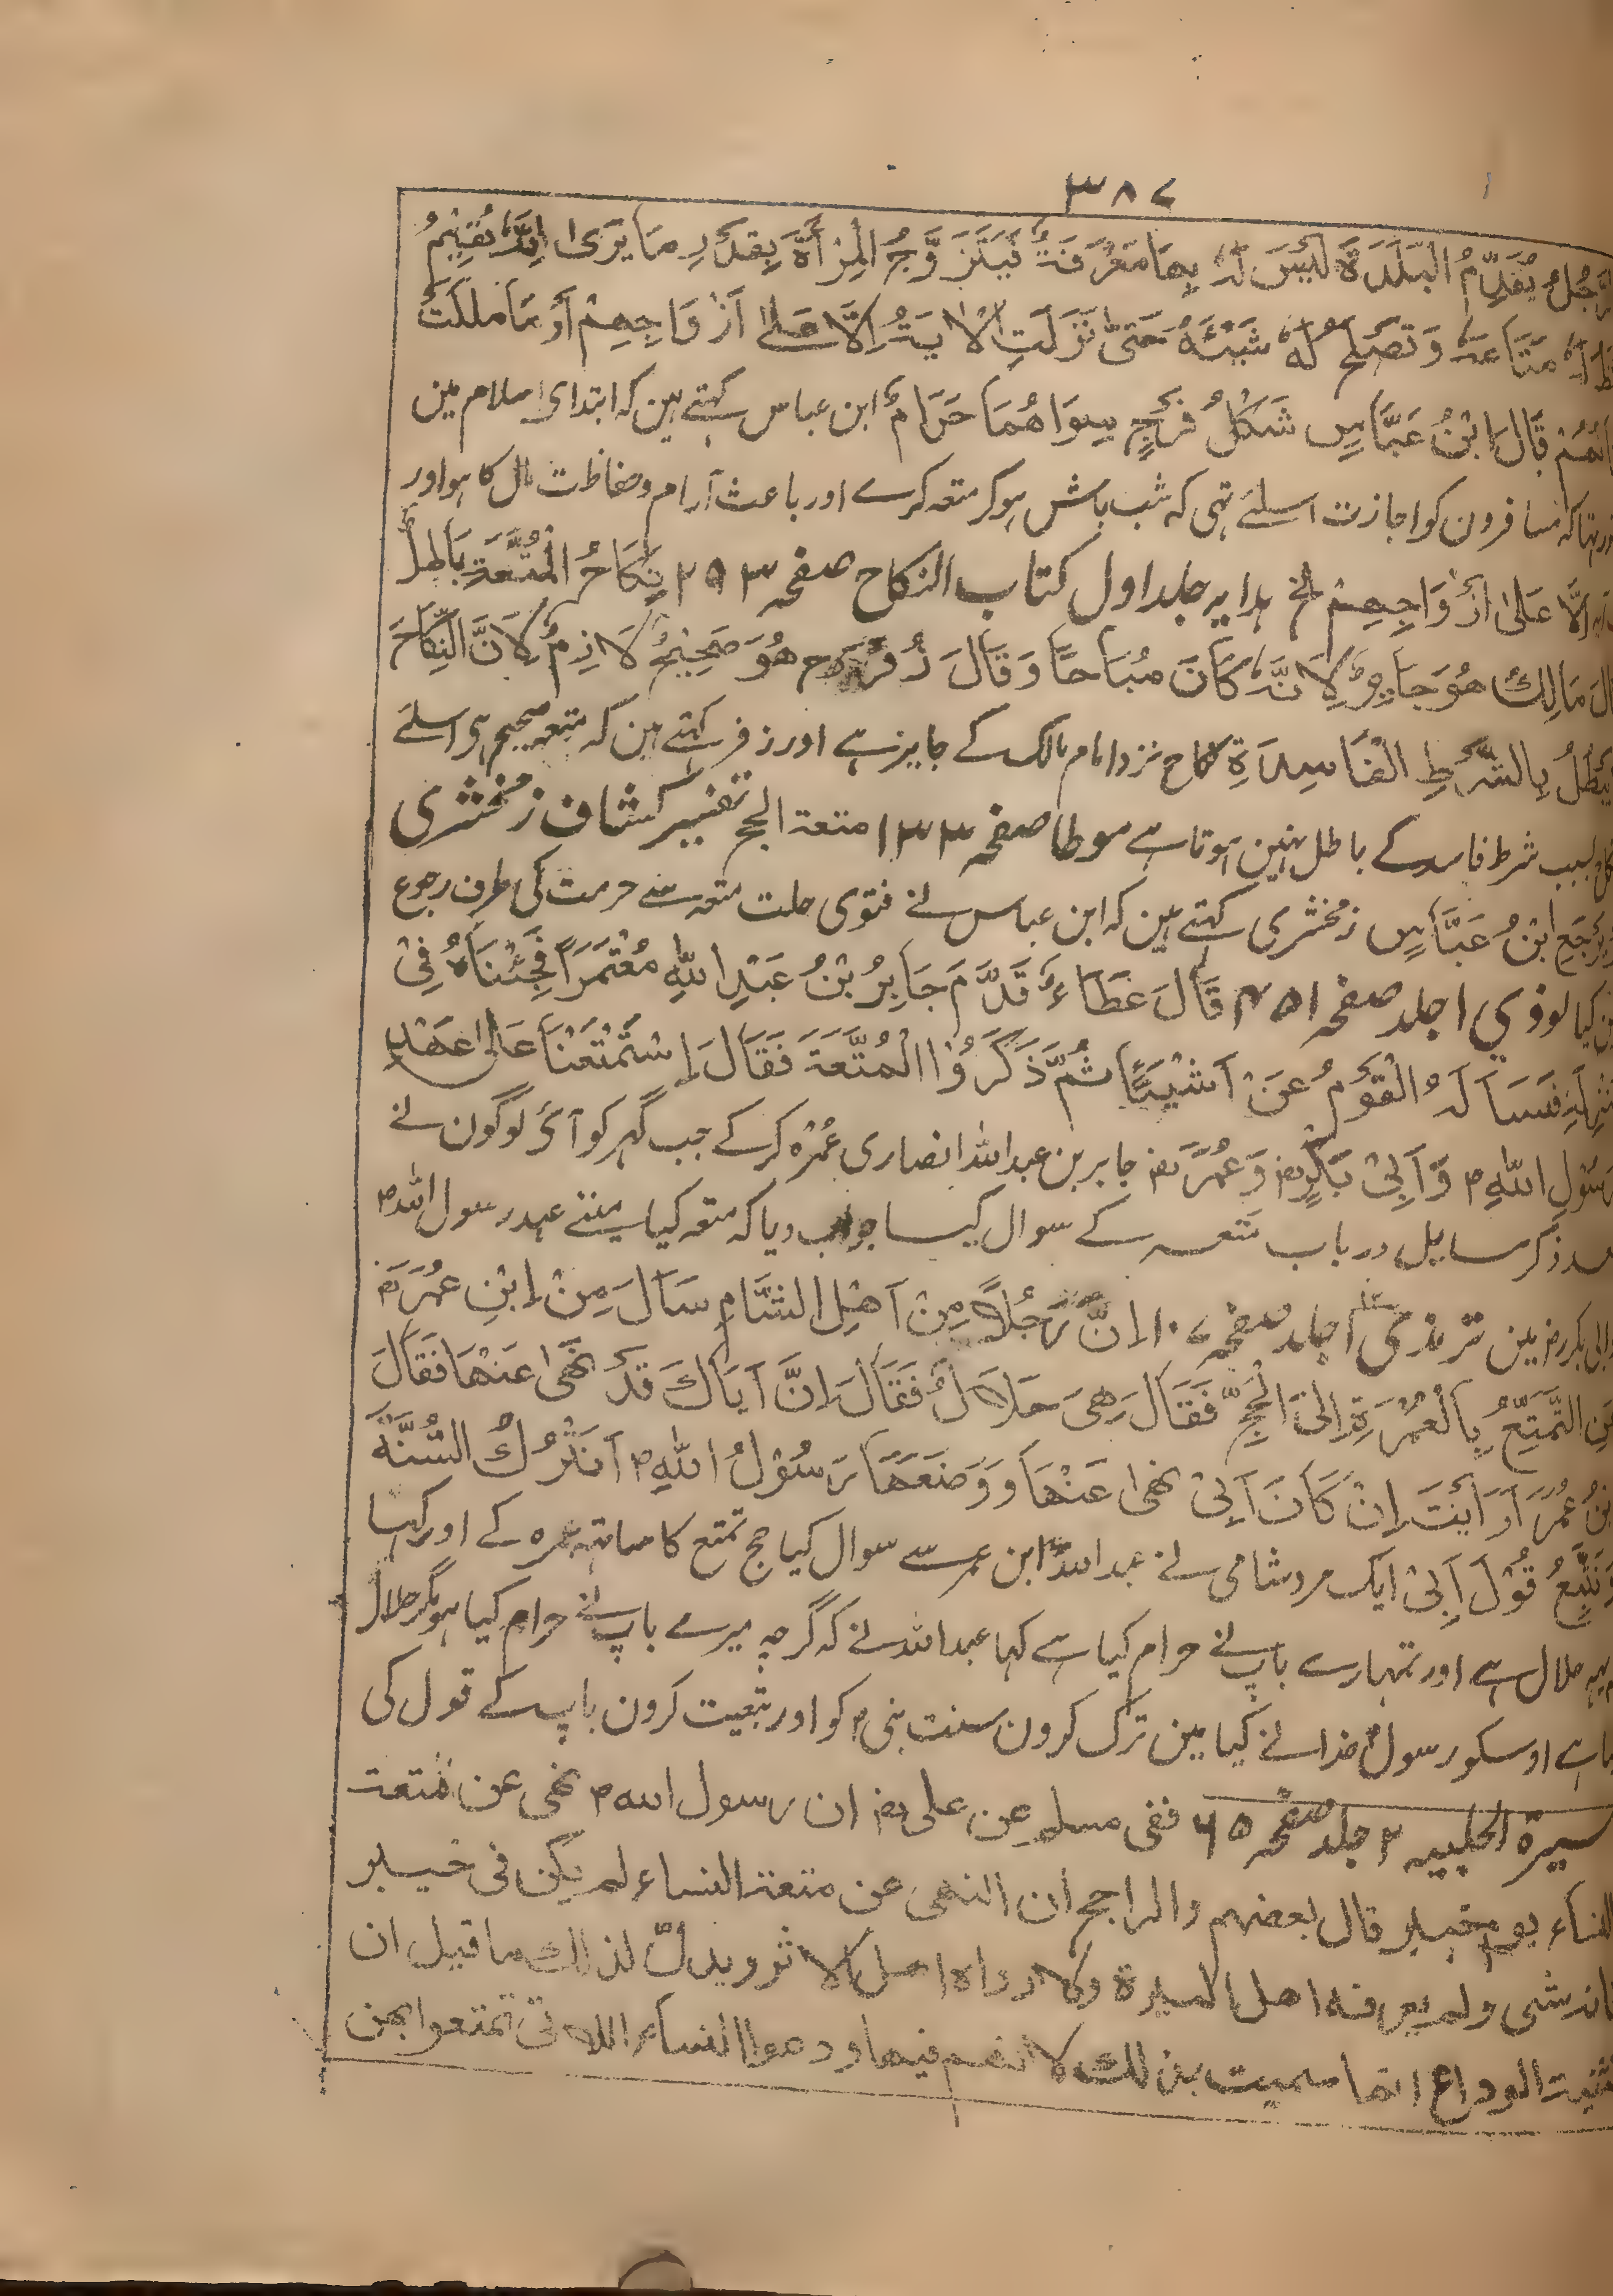 ٣٨٧
الرَّجُلُ يُقَدِّمُ الْبَلَدَةَ لَيْسَ لَهٗ بِهَا مَعْرَفَةٌ فَيَتَزَوَّجُ الْمِرْأَةَ بِقَدَرِ مَا يَرٰى اِنَّهٗ يُقِيْمُ
لَهٗ مَتَاعَهٗ وَتَصْلَحُ لَهٗ شَيْئَهٗ حَتّٰى نَزَلَتِ الْاٰيَةُ اِلَّا عَلٰى اَزْوَاجِهِمْ اَوْ مَا مَلَكَتْ
قَالَ ابْنُ عَبَّاسٍ فَكُلُّ فَرْجٍ سِوَاهُمَا حَرَامٌ ابن عباس کہتے ہین کہ ابتدای اسلام مین
تہا کہ مسافرون کو اجازت اسلئے تہی کہ شب باش ہوکر متعہ کرے اور باعث آرام وحفاظت مال کا ہو اور
اِلَّا عَلٰى اَزْوَاجِهِمْ الخ ہدایہ جلد اول کتاب النکاح صفحہ ۲۹۳ نِكَاحُ الْمُتَّعَةِ بَاطِلٌ
مَالِكُ هُوَ جَايِزٌ لِاَنَّهٗ كَانَ مُبَاحًا وَقَالَ زُفَرُ رح هُوَ صَحِيْحٌ لَازِمٌ لِاَنَّ النِّكَاحَ
يَبْطُلُ بِالشَّرْطِ الْفَاسِدَةِ نکاح نزد امام مالک کے جایز ہے اور زفر کہتے ہین کہ متعہ صحیح ہی اسلئے
بسبب شرط فاسد کے باطل نہین ہوتا ہے موطا صفحہ ۱۳۳ متعة الحج تفسیر کشاف زمخشری
ابْنُ عَبَّاسٍ زمخشری کہتے ہین کہ ابن عباس نے فتوی حلت متعہ سے حرمت کی طرف رجوع
کیا نووی ۱ جلد صفحہ ۴۵۱ قَالَ عَطَاءٌ قَدَّمَ جَابِرُ بْنُ عَبْدِ اللّٰهِ مُعْتَمَرًا فَجِئْنَاهُ فِيْ
فَسَاَلَهُ الْقَوْمُ عَنْ اَشْيَآءَ ثُمَّ ذَكَرُوْا الْمُتَّعَةَ فَقَالَ اِسْتَمْتَعْنَا عَلٰى عَهْدِ
رَسُوْلِ اللّٰهِ ۴ وَاَبِيْ بَكْرٍ رض وَعُمَرَ رض جابر بن عبد اللہ انصاری عُمْرَہ کرکے جب گہر کو آئ لوگون نے
ذکر سایل در باب متعہ کے سوال کیسا جواب دیا کہ متعہ کیا مینے عہد رسول اللہ ۴
ابی بکر رض مین ترمذی ۱ جلد صفحہ ۱۰۷ اِنَّ رَجُلًا مِنْ اَهْلِ الشَّامِ سَاَلَ مِنْ اِبْنِ عُمَرَ رض
عَنِ التَّمَتُّعِ بِالْعُمْرَةِ اِلَى الْحَجِّ فَقَالَ هِيَ حَلَالٌ فَقَالَ اِنَّ اَبَاكَ قَدْ نَهٰى عَنْهَا فَقَالَ
ابْنُ عُمَرَ اَرَاَيْتَ اِنْ كَانَ اَبِيْ نَهٰى عَنْهَا وَوَضَعَهَا رَسُوْلُ اللّٰهِ ۴ اَنَتْرُكُ السُّنَّةَ
وَنَتَّبِعُ قُوْلَ اَبِيْ ایک مرد شامی نے عبد اللہ ابن عمر سے سوال کیا حج تمتع کا ساتہہ عمرہ کے اور کہا
یہہ حلال ہے اور تمہارے باپ نے حرام کیا ہے کہا عبد اللہ نے کہ گرچہ میرے باپ نے حرام کیا ہو مگر حلال
اوسکو رسول خدا نے کیا مین ترک کرون سنت نبی ۴ کو اور تبعیت کرون باپ کے قول کی
سیرة الحلبیہ ۲ جلد صفحہ ۶۵ ففی مسلم عن علی رض ان رسول اللہ ۴ نھی عن متعت
النساء یوم خیبر قال بعضہم والراجح ان النھی عن متعة النساء لم یکن فی خیبر
شی ولم یعرفہ اھل السیرة ولا رواہ اھل الاثر ویدل لذالک ما قیل ان
ثنیة الوداع انما سمیت بذلک لانھم فیھا ودعوا النساء اللاتی تمتعوا بھن